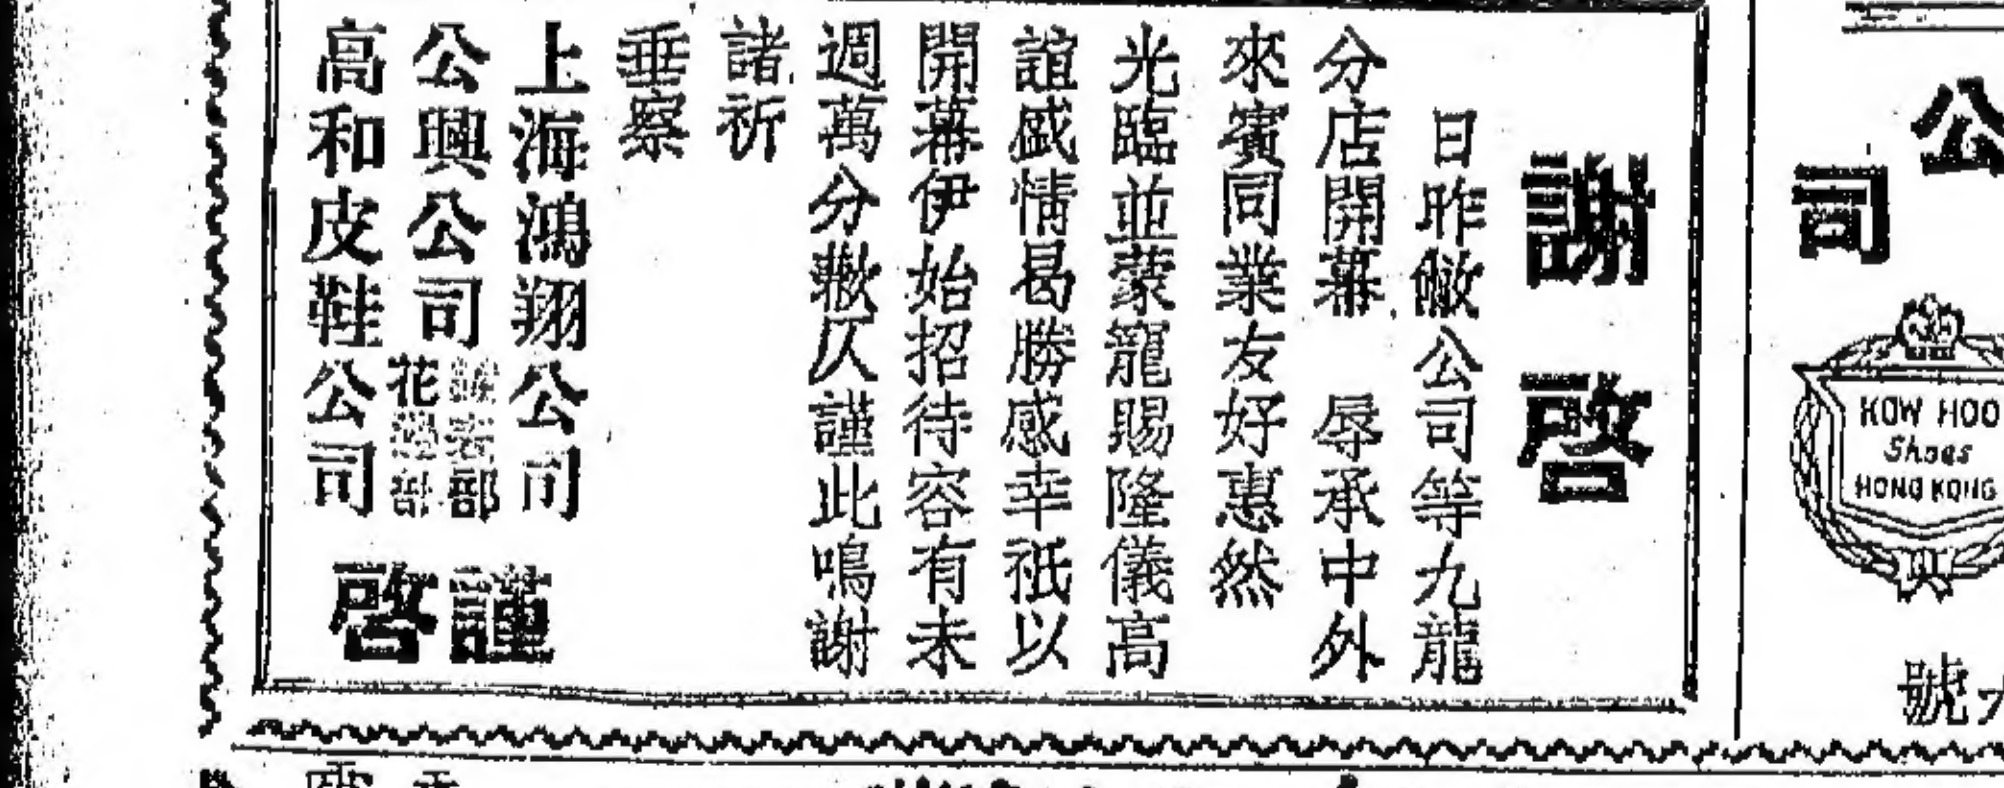 公
司
KOW HOO
Shoes
HONG KONG
號
謝啓
日昨敝公司等九龍
分店開幕 辱承中外
來賓同業友好惠然
光臨並蒙寵賜隆儀高
誼盛情曷勝感幸祇以
開幕伊始招待容有未
週萬分歉仄謹此鳴謝
諸祈
垂察
上海鴻翔公司
公興公司
部
花
部
高和皮鞋公司
謹啓